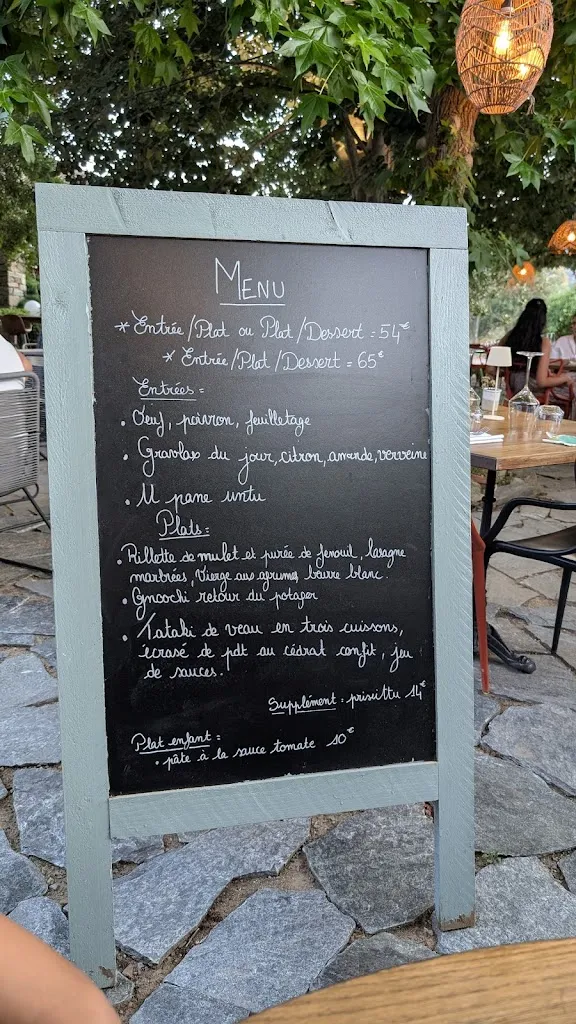 MENU
* Entrée/Plat ou Plat/Dessert = 54€
* Entrée/Plat/Dessert = 65€
Entrées =
• Oeuf, poivron, feuilletage
• Gravlax du jour, citron, amande, verveine
• U pane untu
Plats =
• Rillette de mulet et purée de fenouil, lasagne
marbrées, Vierge aux agrumes, beurre blanc.
• Gnocchi retour du potager
• Tataki de veau en trois cuissons,
écrasé de pdt au cédrat confit, jeu
de sauces.
Supplément = prisuttu 14€
Plat enfant =
• pâte à la sauce tomate 10€